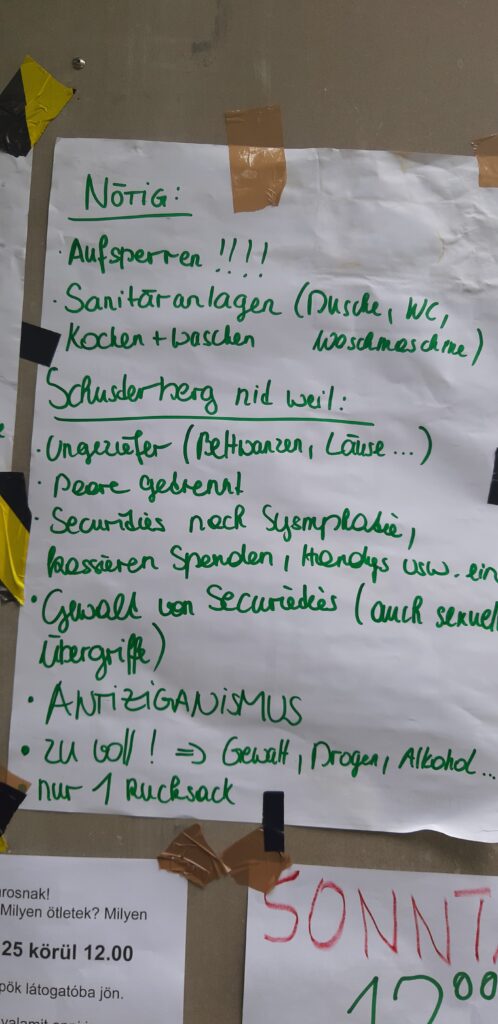 NÖTIG:
· Aufsperren !!!!
· Sanitäranlagen (Dusche, WC,
Kochen + waschen Waschmaschine)
Schusderberg nid weil:
· Ungeziefer (Bettwanzen, Läuse ...)
· Paare getrennt
· Securities nach Sysmphatie,
kassieren Spenden, Handys usw. ein
· Gewalt von Securities (auch sexuel
Übergriffe)
· ANTIZIGANISMUS
· ZU VOLL! => Gewalt, Drogen, Alkohol...
· nur 1 Rucksack
arosnak!
Milyen ötletek? Milyen
25 körül 12.00
pök látogatóba jön.
valamit
SONNTA
12⁰⁰